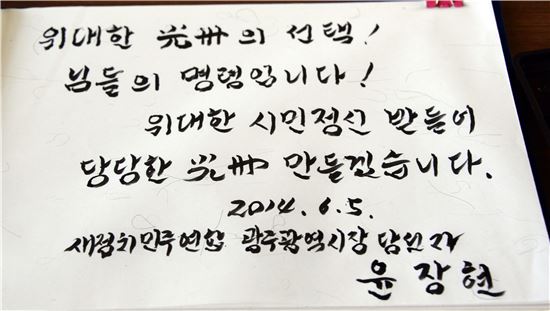 위대한 光州의 선택!
님들의 명령입니다!
위대한 시민정신 받들어
당당한 光州 만들겠습니다.
2014. 6. 5.
새정치민주연합 광주광역시장 당선자
윤장현